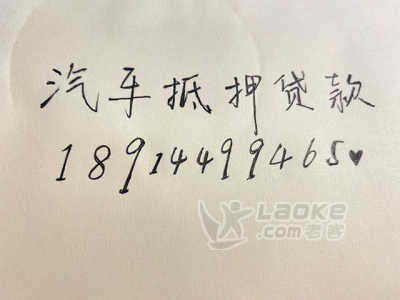 汽车抵押贷款
18914499465♥
LAOKE
.com老客